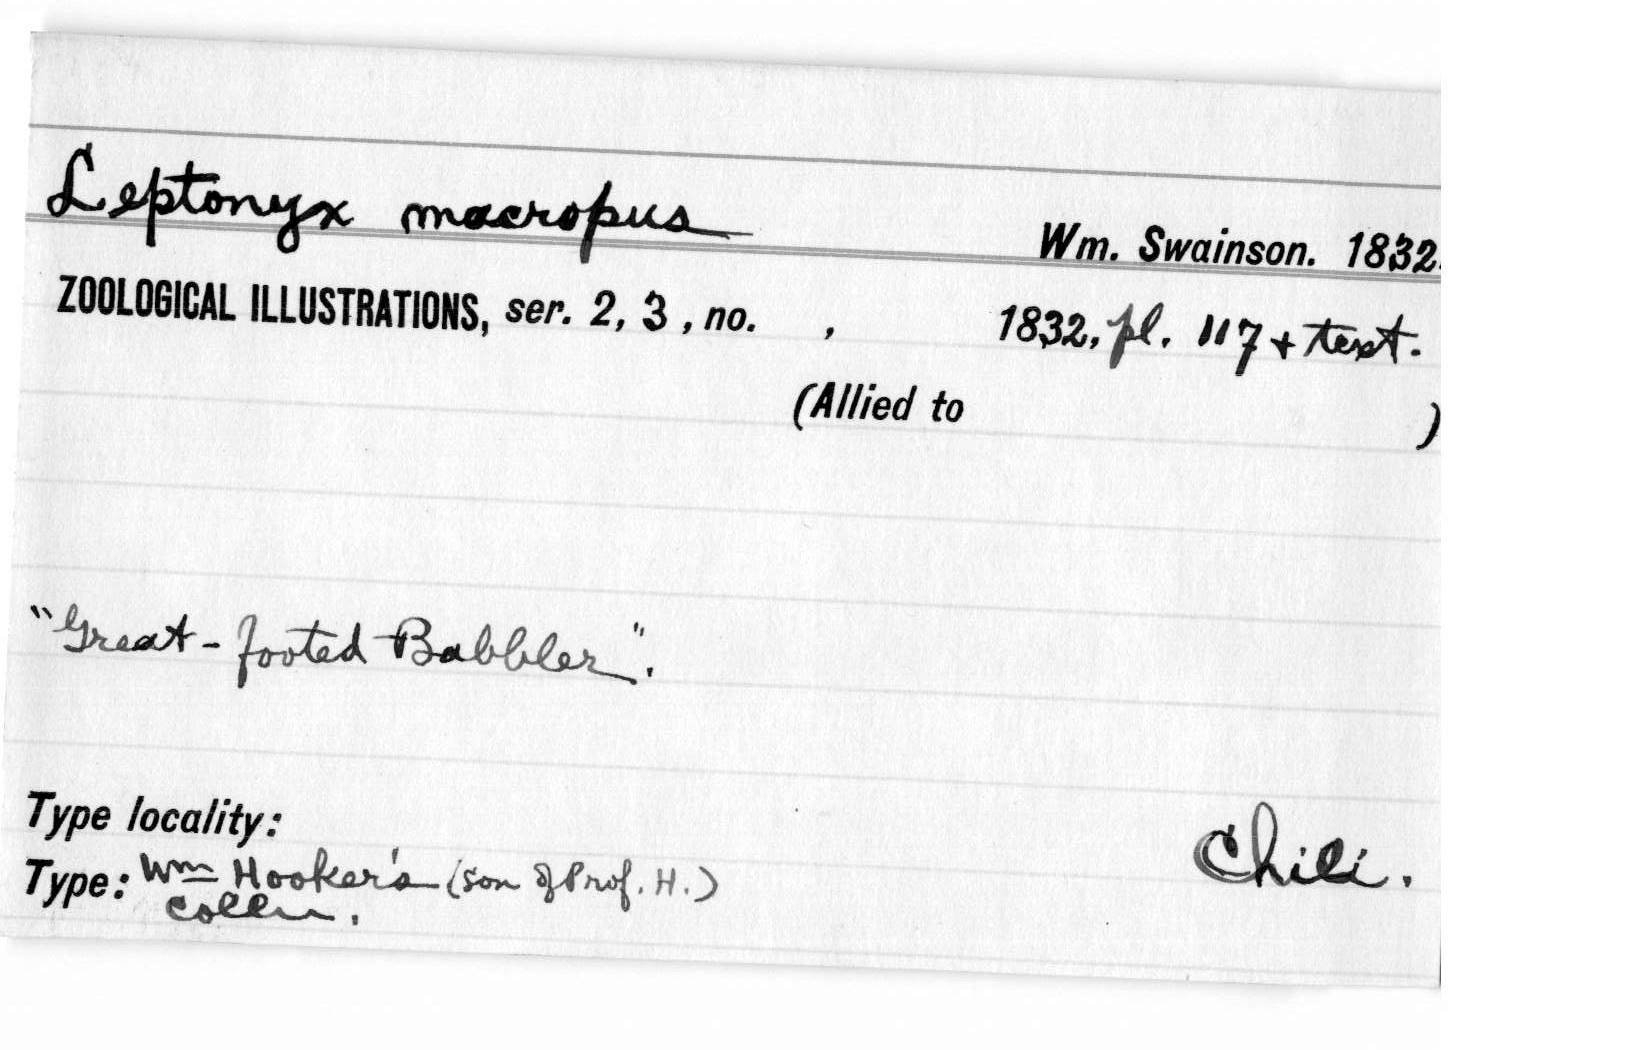 Leptonyx macropus
Wm. Swainson. 1832.
ZOOLOGICAL ILLUSTRATIONS, ser. 2, 3, no. , 1832, pl. 117 + text.
(Allied to )
"Great-footed Babbler".
Type locality:
Chili.
Type: Wm Hooker's (son of Prof. H.)
colln.